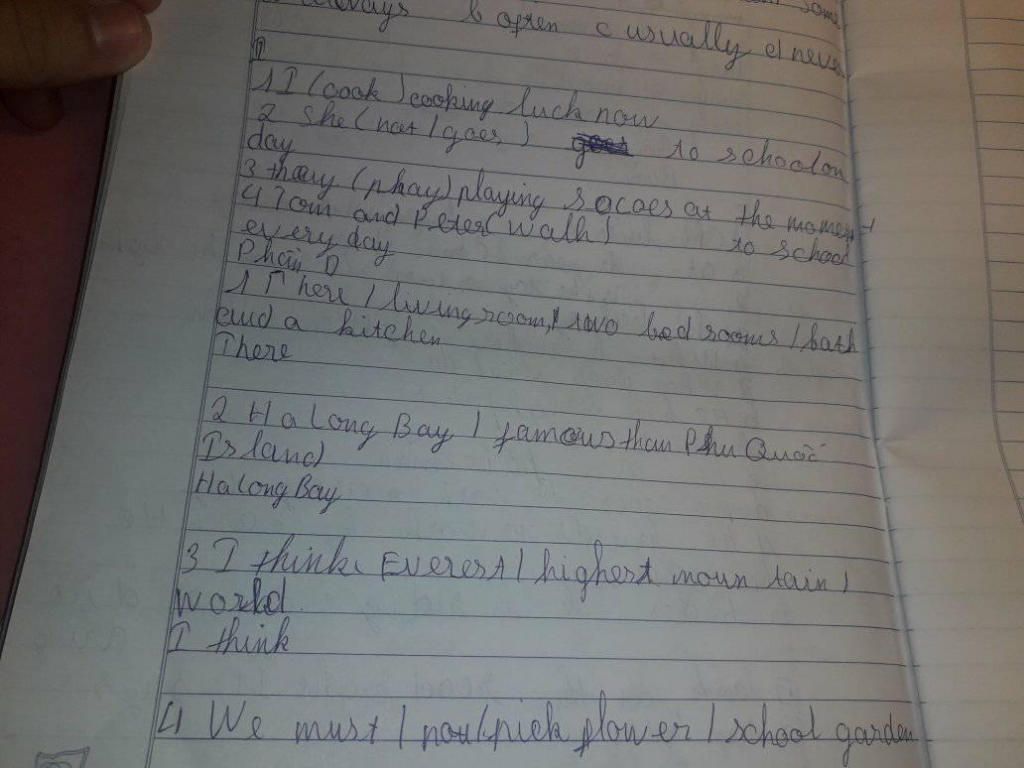 always b often c usually d neve
1 I (cook) cooking luch now
2 She (not / goes) to school on
day
3 thay (phay) playing socaes at the moment
4 Tom and Peter (walk) to school
every day
Phần D
1 There / living room, / two bed rooms / bath
and a kitchen
There
2 Ha Long Bay / famous than Phu Quốc
Island
Ha Long Bay
3 I think Everest / highest moun tain /
World
I think
4 We must / not / pick flower / school garden